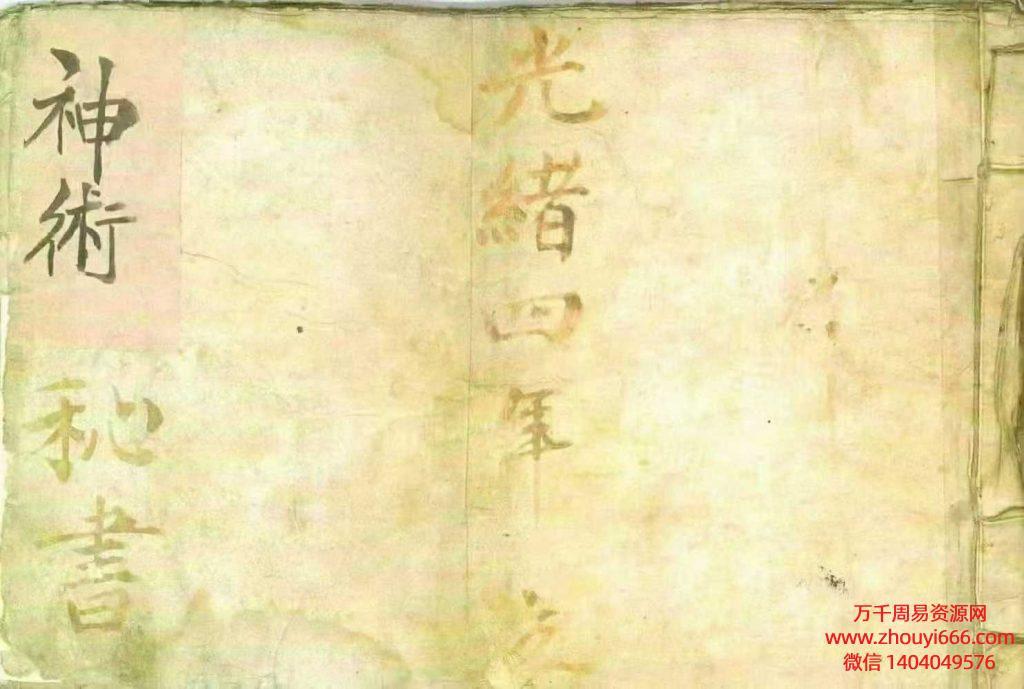 光緒四年
神術秘書
万千周易资源网
www.zhouyi666.com
微信 1404049576